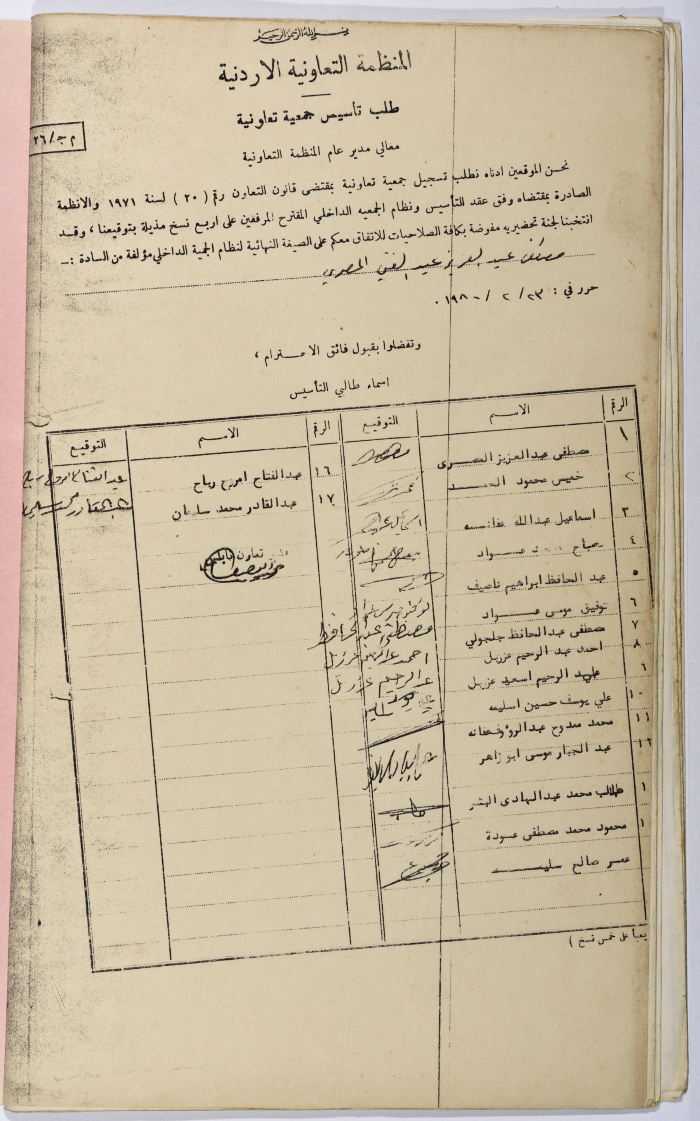 بسم الله الرحمن الرحيم
المنظمة التعاونية الاردنية
طلب تأسيس جمعية تعاونية
م ج/٢٦
معالي مدير عام المنظمة التعاونية
نحن الموقعين ادناه نطلب تسجيل جمعية تعاونية بمقتضى قانون التعاون رقم (٢٠) لسنة ١٩٧١ والانظمة
الصادرة بمقتضاه وفق عقد التأسيس ونظام الجمعيه الداخلي المقترح المرفقين على اربع نسخ مذيلة بتوقيعنا، وقد
انتخبنا لجنة تحضيريه مفوضة بكافة الصلاحيات للاتفاق معكم على الصيغة النهائية لنظام الجمية الداخلي مؤلفة من السادة :ـ
مصطفى عبد العزيز عبد الغني المصري
حرر في : ٢٣/ ٢ /١٩٨٠.
وتفضلوا بقبول فائق الاحترام ،
اسماء طالبي التأسيس
الرقم الاسم التوقيع الرقم الاسم التوقيع
١ مصطفى عبدالعزيز المصرى
٢ خميس محمود الحمد
٣ اسماعيل عبدالله عفانـه
٤ صباح عواد
٥ عبد الحافظ ابراهيم ناصيف
٦ توفيق موسى عواد
٧ مصطفى عبدالحافظ جلجولي
٨ احمد عبد الرحيم عزريل احمد عزريل
٩ عبد الرحيم اسعد عزريل عبدالرحيم عزريل
١٠ علي يوسف حسين اسليم
١١ محمد ممدوح عبدالرؤوف عفانه
١٢ عبد الجبار موسى ابو زاهر
١ طالب محمد عبدالهادى البشر طالب
١ محمود محمد مصطفى عودة
عمر صالح سليم
١٦ عبدالفتاح امريح رباح عبد الفتاح امريح رباح
١٧ عبدالقادر محمد سلمان عبد القادر محمد
تعاون نابلس
يعبأ على خمس نسخ )